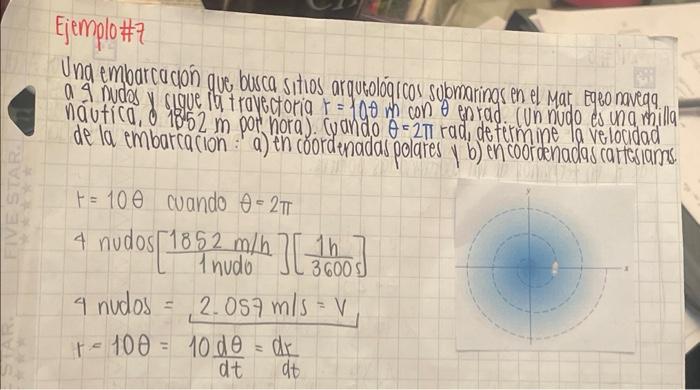 Ejemplo #7
Una embarcación que busca sitios arqueológicos submarinos en el Mar Egeo navega
a 4 nudos y sigue la trayectoria r = 10θ m con θ en rad. (un nudo es una milla
náutica, o 1852 m por hora). Cuando θ = 2π rad, determine la velocidad
de la embarcacion: a) en coordenadas polares y b) en coordenadas cartesianas.
r = 10θ cuando θ = 2π
4 nudos [1852 m/h / 1 nudo] [1h / 3600s]
4 nudos = 2.057 m/s = V
r = 10θ = 10 dθ/dt = dr/dt
y
x
FIVE STAR.
STAR.